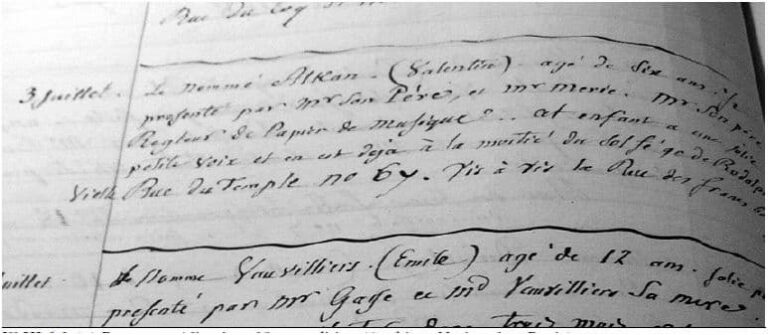 Rue du Coq St
3 Juillet. Le nommé Alkan. (Valentin) agé de Six ans.
presenté par Mr Son Père, et Mr Merié. Mr Son père
Regleur de Papier de Musique. cet enfant a une jolie
petite voix et en est dejà à la moitié du Solfége de Rodolphe
Vieille Rue du Temple no 67. Vis à vis la Rue des francs
Juillet. le nommé Vauvilliers. (Emile) agé de 12 ans. Jolie
presenté par Mr Gasse et Md Vauvilliers Sa mere
trois mois